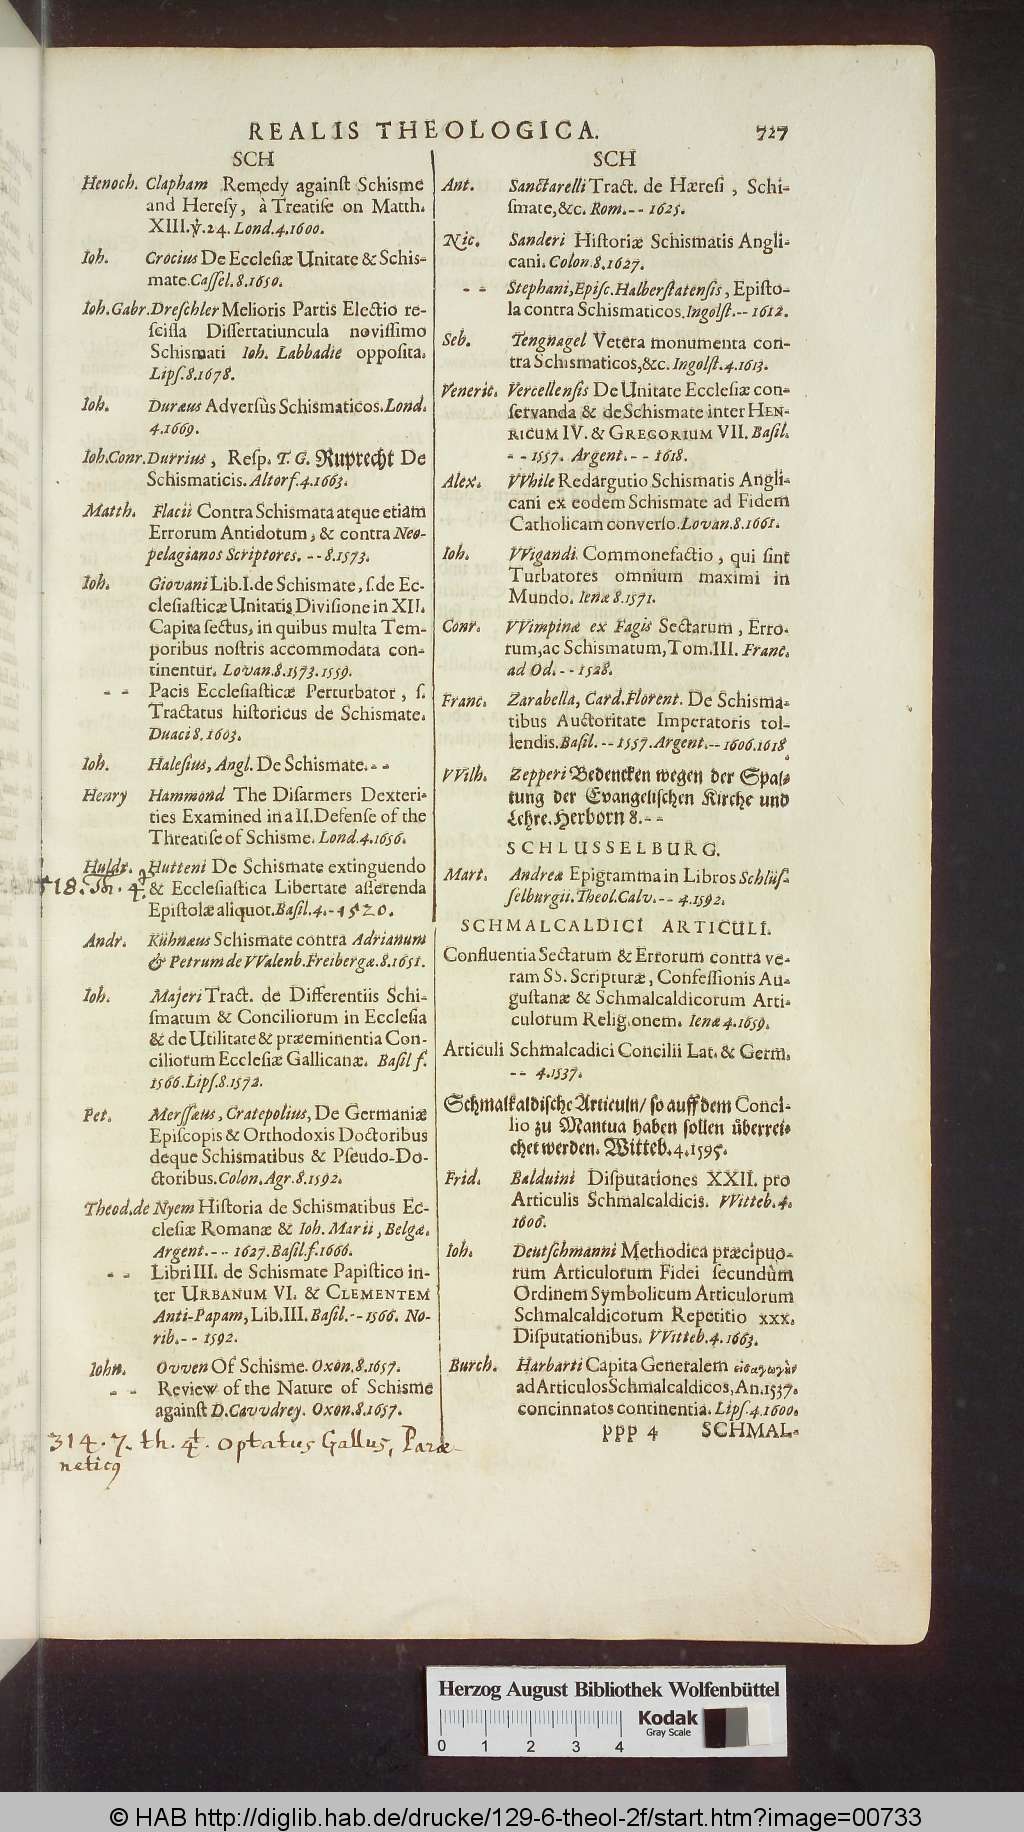 REALIS THEOLOGICA. 727
SCH
Henoch. Clapham Remedy againſt Schisme
and Hereſy, à Treatiſe on Matth.
XIII.ỳ.24. Lond.4.1600.
Ioh. Crocius De Eccleſiæ Unitate & Schis-
mate.Caſſel.8.1650.
Ioh.Gabr.Dreſchler Melioris Partis Electio re-
ſciſſa Diſſertatiuncula noviſſimo
Schismati Ioh. Labbadie oppoſita.
Lipſ.8.1678.
Ioh. Duræus Adverſùs Schismaticos.Lond.
4.1669.
Ioh.Conr.Durrius, Reſp. T. G. Ruprecht De
Schismaticis. Altorf.4.1663.
Matth. Flacii Contra Schismata atque etiam
Errorum Antidotum, & contra Neo-
pelagianos Scriptores. -- 8.1573.
Ioh. Giovani Lib.I.de Schismate, ſ.de Ec-
cleſiaſticæ Unitatis Diviſione in XII.
Capita ſectus, in quibus multa Tem-
poribus noſtris accommodata con-
tinentur. Lovan.8.1573.1559.
-- Pacis Eccleſiaſticæ Perturbator, ſ.
Tractatus hiſtoricus de Schismate.
Duaci 8.1603.
Ioh. Haleſius, Angl. De Schismate.--
Henry Hammond The Diſarmers Dexteri-
ties Examined in a II.Defenſe of the
Threatiſe of Schisme. Lond.4.1656.
Huldr. Hutteni De Schismate extinguendo
518. Th. 4º & Eccleſiaſtica Libertate aſſerenda
Epiſtolæ aliquot.Baſil.4.-1520.
Andr. Kühnæus Schismate contra Adrianum
& Petrum de VValenb.Freibergæ.8.1651.
Ioh. Majeri Tract. de Differentiis Schi-
ſmatum & Conciliorum in Eccleſia
& de Utilitate & præeminentia Con-
ciliorum Eccleſiæ Gallicanæ. Baſil f.
1566.Lipſ.8.1572.
Pet. Merſſæus, Cratepolius, De Germaniæ
Epiſcopis & Orthodoxis Doctoribus
deque Schismatibus & Pſeudo-Do-
ctoribus.Colon.Agr.8.1592.
Theod.de Nyem Hiſtoria de Schismatibus Ec-
cleſiæ Romanæ & Ioh. Marii, Belgæ.
Argent.-- 1627.Baſil.f.1666.
-- Libri III. de Schismate Papiſtico in-
ter URBANUM VI. & CLEMENTEM
Anti-Papam, Lib.III. Baſil.--1566. No-
rib.-- 1592.
Iohn. Ovven Of Schisme. Oxon.8.1657.
-- Review of the Nature of Schisme
againſt D.Cavvdrey. Oxon.8.1657.
314.7. th. 4t. optatus Gallus, Paræ-
neticq
SCH
Ant. Sanctarelli Tract. de Hæreſi, Schi-
ſmate,&c. Rom.-- 1625.
Nic. Sanderi Hiſtoriæ Schismatis Angli-
cani.Colon.8.1627.
-- Stephani,Epiſc.Halberſtatenſis, Epiſto-
la contra Schismaticos.Ingolſt.-- 1612.
Seb. Tengnagel Vetera monumenta con-
tra Schismaticos,&c. Ingolſt.4.1613.
Veneric. Vercellenſis De Unitate Eccleſiæ con-
ſervanda & de Schismate inter HEN-
RICUM IV. & GREGORIUM VII. Baſil.
-- 1557. Argent.-- 1618.
Alex. VVhile Redargutio Schismatis Angli-
cani ex eodem Schismate ad Fidem
Catholicam converſo.Lovan.8.1661.
Ioh. VVigandi Commonefactio, qui ſint
Turbatores omnium maximi in
Mundo. Ienæ 8.1571.
Conr. VVimpinæ ex Fagis Sectarum, Erro-
rum,ac Schismatum, Tom.III. Franc.
ad Od.-- 1528.
Franc. Zarabella, Card.Florent. De Schisma-
tibus Auctoritate Imperatoris tol-
lendis.Baſil.--1557.Argent.--1606.1618.
VVilh. Zepperi Bedencken wegen der Spal-
tung der Evangeliſchen Kirche und
Lehre. Herborn 8.--
SCHLUSSELBURG.
Mart. Andreæ Epigramma in Libros Schlüſ-
ſelburgii. Theol.Calv.-- 4.1592.
SCHMALCALDICI ARTICULI.
Confluentia Sectarum & Errorum contra ve-
ram SS. Scripturæ, Confeſſionis Au-
guſtanæ & Schmalcaldicorum Arti-
culorum Religionem. Ienæ 4.1659.
Articuli Schmalcadici Concilii Lat. & Germ.
-- 4.1537.
Schmalkaldiſche Articuln/ ſo auff dem Conci-
lio zu Mantua haben ſollen überrei-
chet werden. Witteb.4.1595.
Frid. Balduini Diſputationes XXII. pro
Articulis Schmalcaldicis. VVitteb.4.
1606.
Ioh. Deutſchmanni Methodica præcipuo-
rum Articulorum Fidei ſecundùm
Ordinem Symbolicum Articulorum
Schmalcaldicorum Repetitio xxx.
Diſputationibus. VVitteb.4.1663.
Burch. Harbarti Capita Generalem εἰσαγωγὴν
ad Articulos Schmalcaldicos, An.1537.
concinnatos continentia. Lipſ.4.1600.
ppp 4 SCHMAL-
Herzog August Bibliothek Wolfenbüttel
Kodak
Gray Scale
0 1 2 3 4
© HAB http://diglib.hab.de/drucke/129-6-theol-2f/start.htm?image=00733